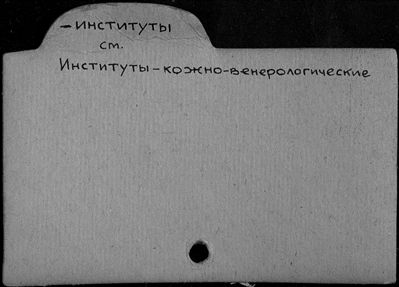 – институты
см.
Институты – кожно-венерологические